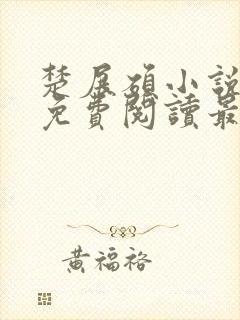 楚展碩小說
免費閱讀最
黃福裕